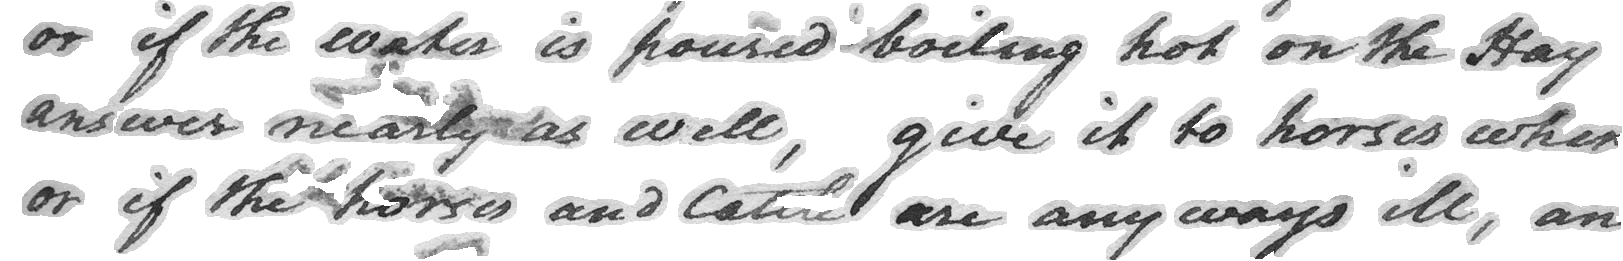 or if the water is poured boiling hot on the Hay
answer nearly as well, give it to horses when
or if the horses and Cattle are any ways ill, an